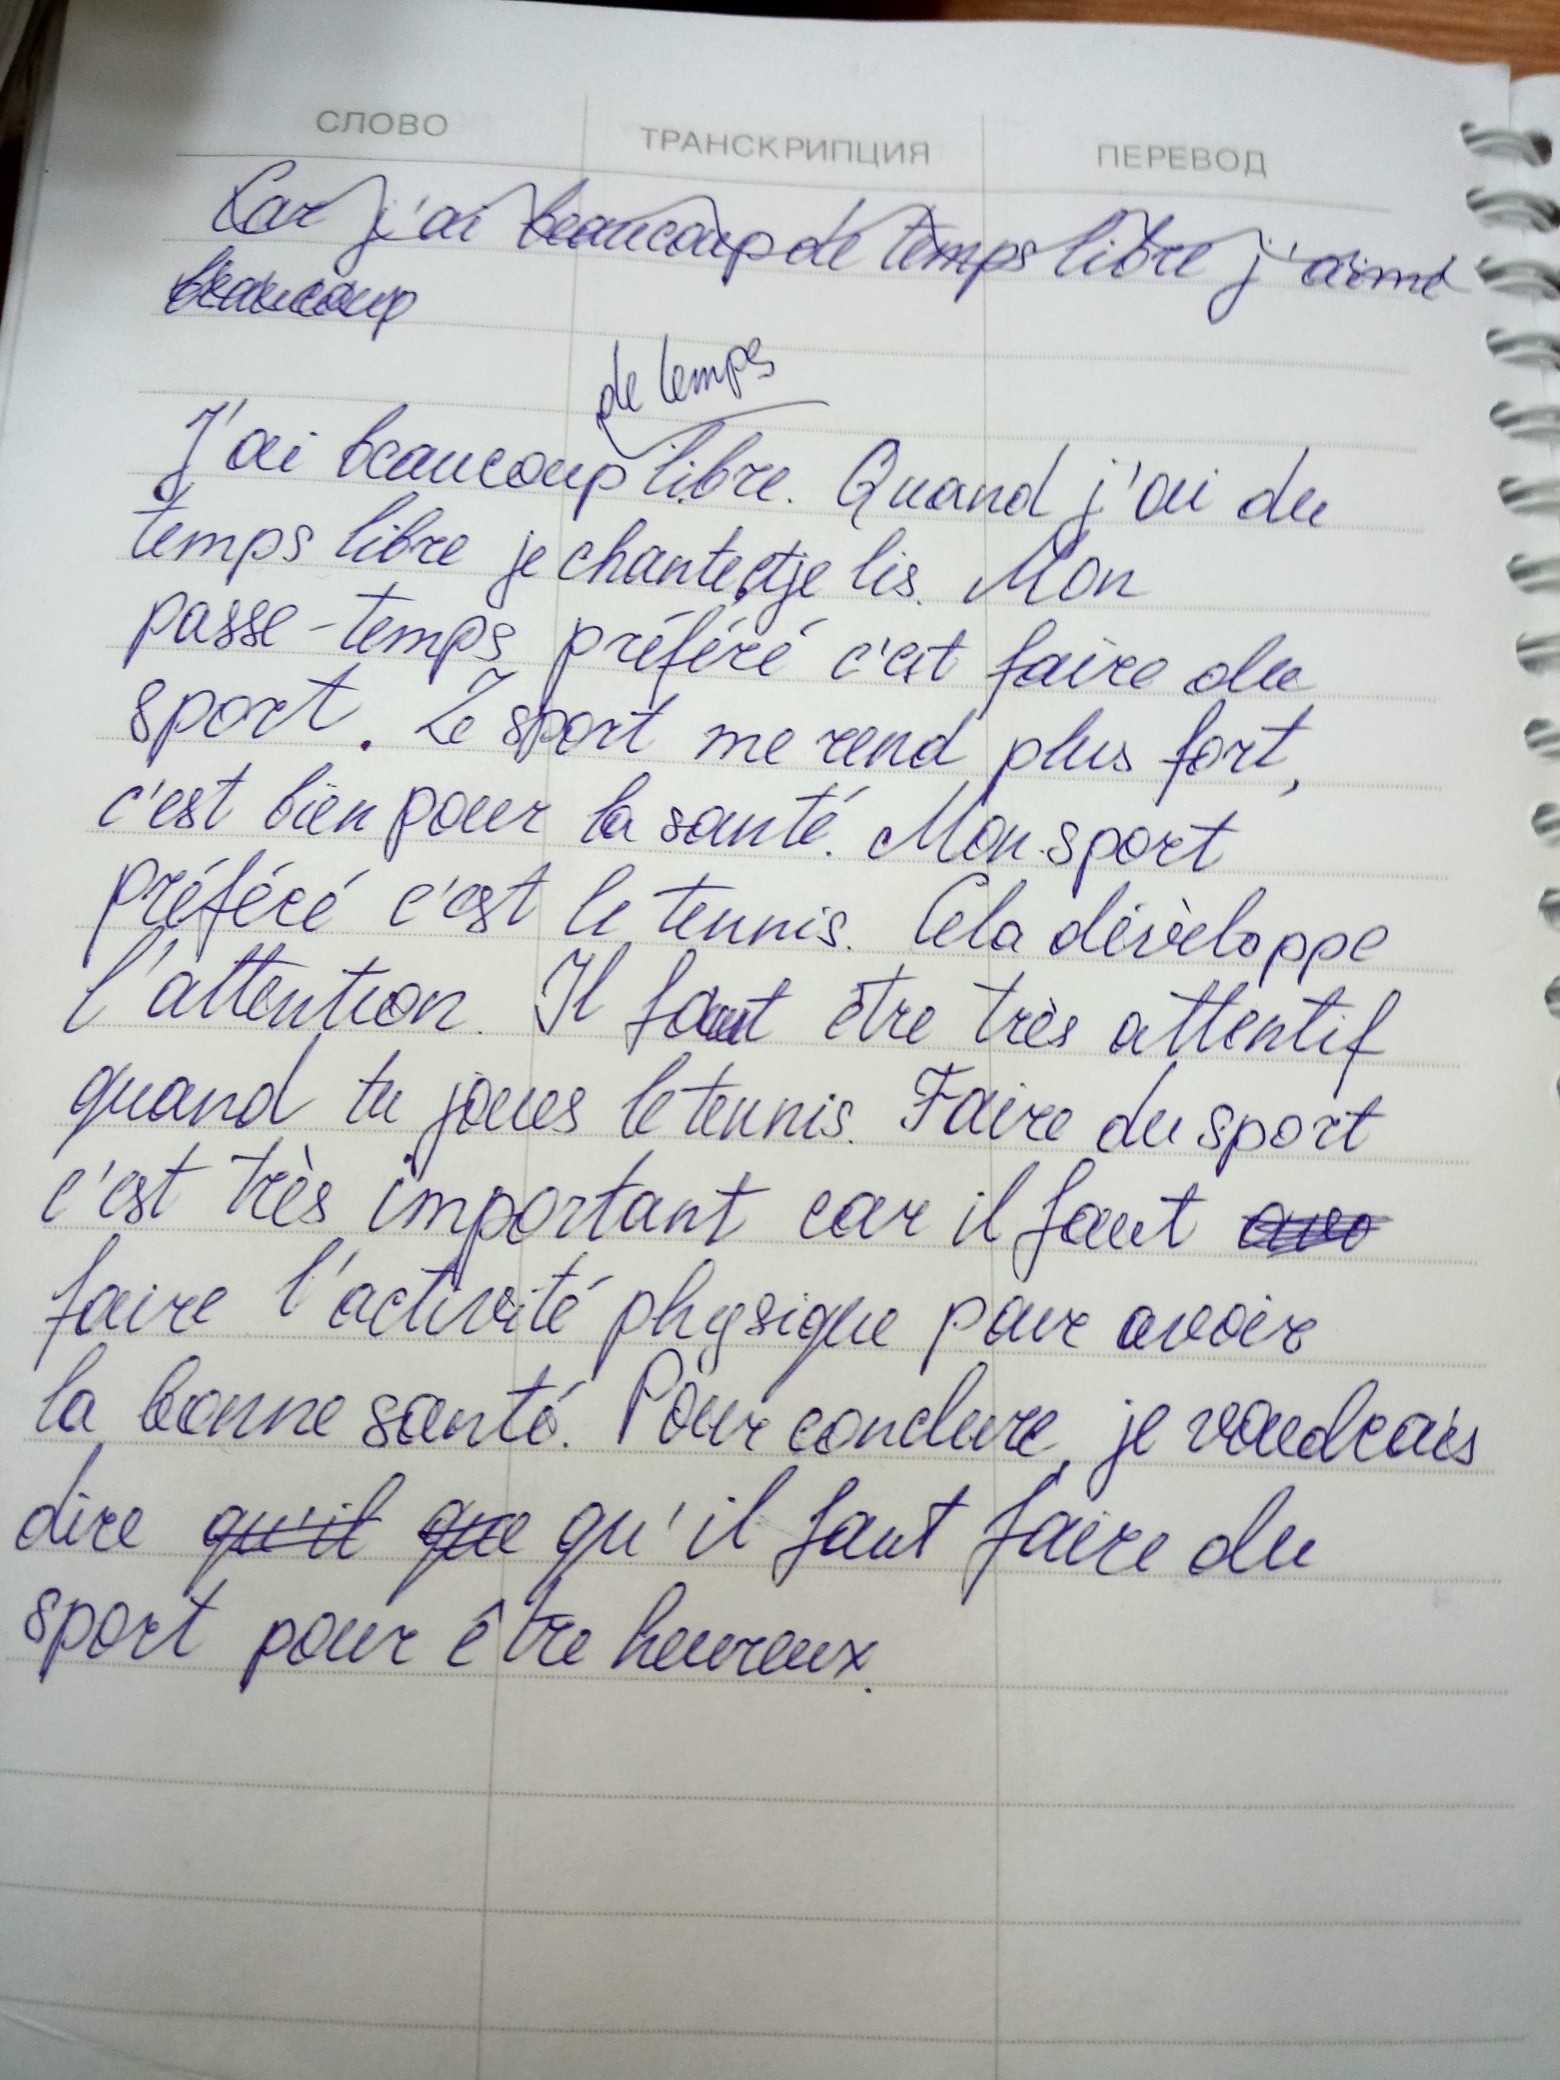 СЛОВО ТРАНСКРИПЦИЯ ПЕРЕВОД
Car j'ai beaucoup de temps libre j'aime
beaucoup
de temps
J'ai beaucoup libre. Quand j'ai du
temps libre je chante et je lis. Mon
passe-temps préféré c'est faire du
sport. Le sport me rend plus fort,
c'est bien pour la santé. Mon sport
préféré c'est le tennis. Cela dévèloppe
l'attention. Il faut être très attentif
quand tu joues le tennis. Faire du sport
c'est très important car il faut avo
faire l'activité physique pour avoir
la bonne santé. Pour conclure, je voudrais
dire qu'il que qu'il faut faire du
sport pour être heureux.